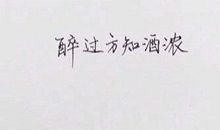 醉过方知酒浓